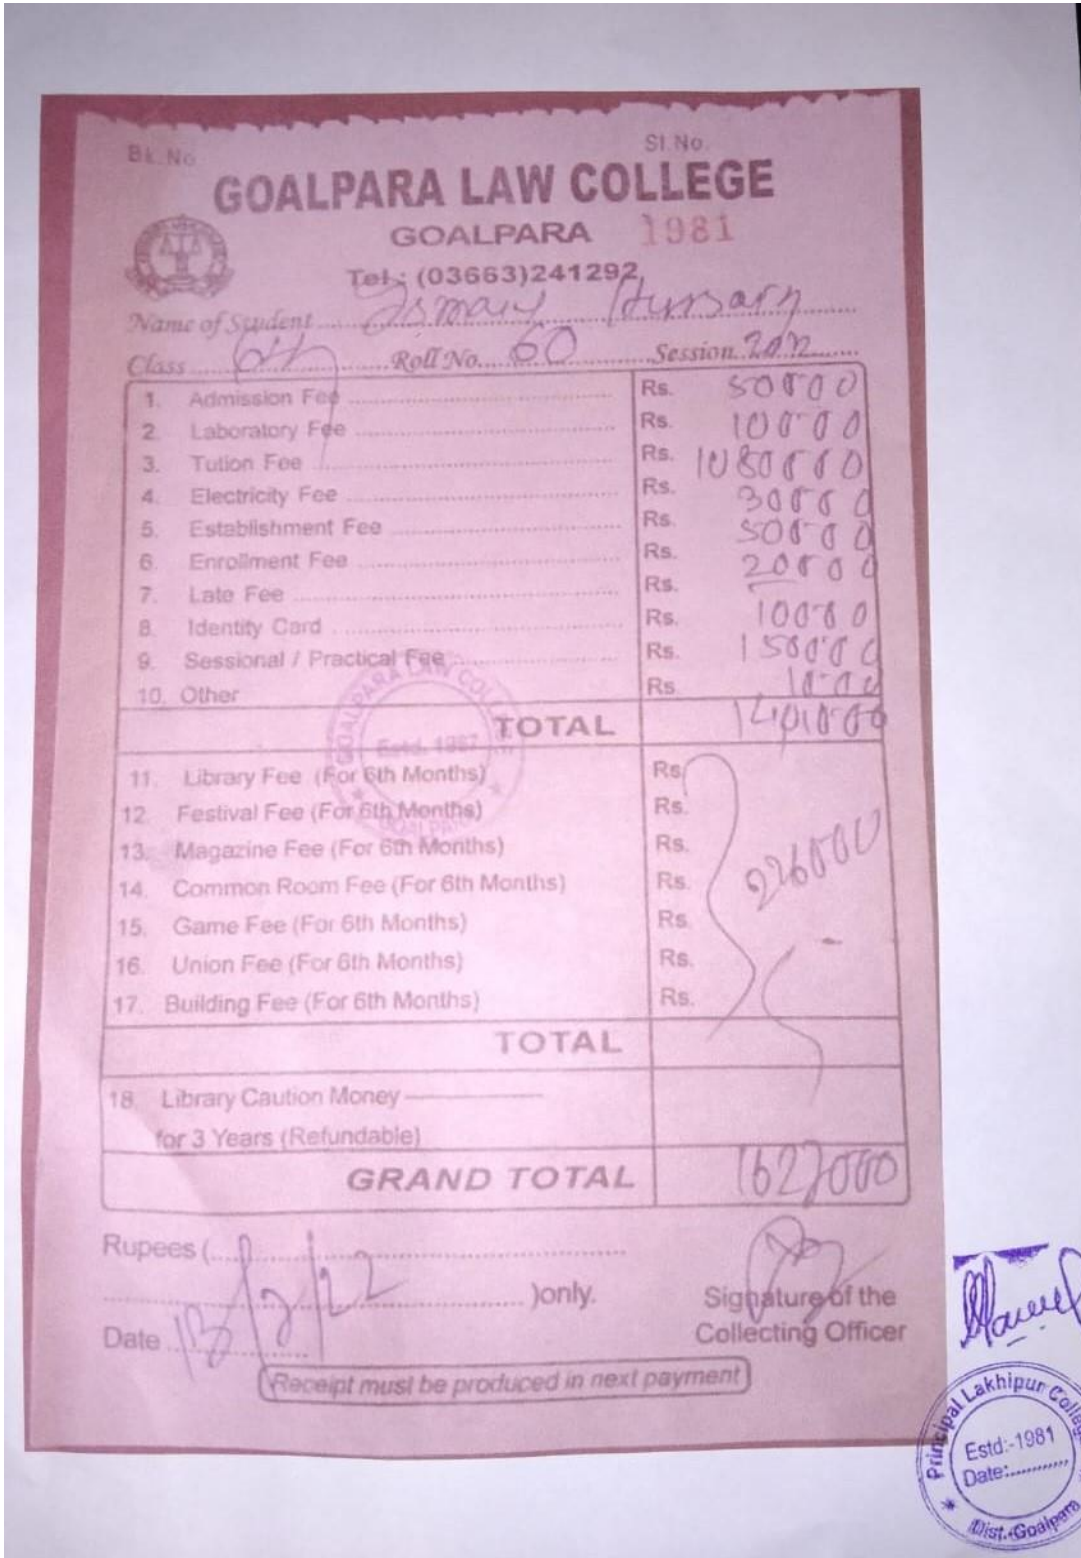 Bk. No. Sl. No.
GOALPARA LAW COLLEGE
GOALPARA 1981
Tel.: (03663)241292
Name of Student
Class 6th Roll No. 60 Session
1. Admission Fee Rs. 500 00
2. Laboratory Fee Rs. 100 00
3. Tution Fee Rs. 1080 00
4. Electricity Fee Rs. 300 00
5. Establishment Fee Rs. 500 00
6. Enrollment Fee Rs. 200 00
7. Late Fee Rs.
8. Identity Card Rs. 100 00
9. Sessional / Practical Fee Rs. 1500 00
10. Other Rs.
TOTAL
11. Library Fee (For 6th Months) Rs.
12. Festival Fee (For 6th Months) Rs.
13. Magazine Fee (For 6th Months) Rs. 2260 00
14. Common Room Fee (For 6th Months) Rs.
15. Game Fee (For 6th Months) Rs.
16. Union Fee (For 6th Months) Rs.
17. Building Fee (For 6th Months) Rs.
TOTAL
18. Library Caution Money
for 3 Years (Refundable)
GRAND TOTAL 1627000
Rupees (
)only.
Signature of the
Date 13/2/22 Collecting Officer
Receipt must be produced in next payment
GOALPARA LAW COLLEGE
Estd. 1987
GOALPARA
Principal Lakhipur College
Estd:-1981
Date:
Dist.-Goalpara